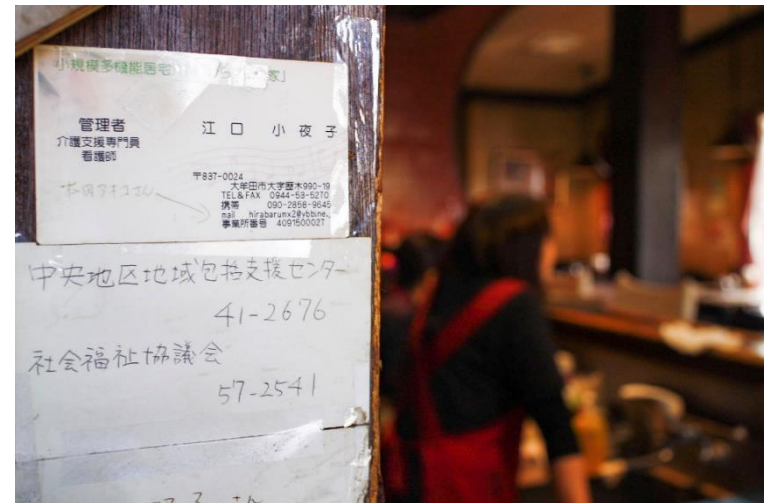 小規模多機能居宅 家」
管理者
介護支援専門員
看護師
江口 小夜子
〒837-0024
大牟田市大字歴木990-19
TEL&FAX 0944-53-5270
携帯 090-2858-9645
mail hirabarumx2@ybb.ne.
事業所番号 4091500027
中央地区地域包括支援センター
41-2676
社会福祉協議会
57-2541